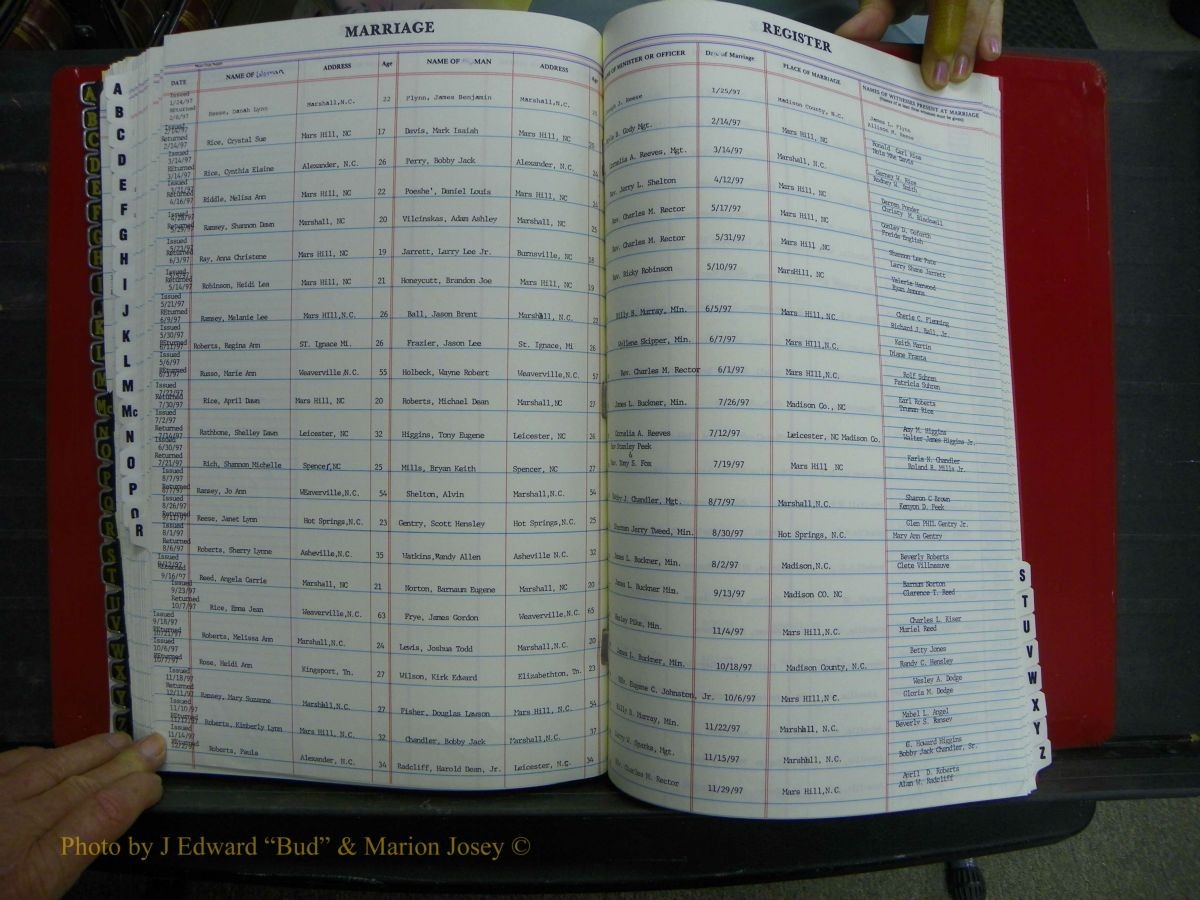 MARRIAGE
DATE NAME OF Woman ADDRESS Age NAME OF MAN ADDRESS Age
Issued 1/24/97 Returned 2/6/97 Reese, Danah Lynn Marshall,N.C. 22 Flynn, James Benjamin Marshall,N.C.
Returned 2/14/97 Rice, Crystal Sue Mars Hill, NC 17 Davis, Mark Isaiah Mars Hill, NC
Issued 3/14/97 Returned 3/14/97 Rice, Cynthia Elaine Alexander, N.C. 26 Perry, Bobby Jack Alexander, N.C.
Issued Returned 4/16/97 Riddle, Melissa Ann Mars Hill, NC 22 Poeshe', Daniel Louis Mars Hill, NC
Ramsey, Shannon Dawn Marshall, NC 20 Vilcinskas, Adam Ashley Marshall, NC 25
Issued 5/23/97 Returned 6/3/97 Ray, Anna Christene Mars Hill, NC 19 Jarrett, Larry Lee Jr. Burnsville, NC 18
Returned 5/14/97 Robinson, Heidi Lea Mars Hill, NC 21 Honeycutt, Brandon Joe Mars Hill, NC 19
Issued 5/21/97 REturned 6/9/97 Ramsey, Melanie Lee Mars HIll,NC 26 Ball, Jason Brent Marshall, N.C. 22
Issued 5/30/97 REturned 6/11/97 Roberts, Regina Ann ST. Ignace Mi. 26 Frazier, Jason Lee St. Ignace, Mi 26
Issued 5/6/97 6/3/97 Russo, Marie Ann Weaverville,N.C. 55 Holbeck, Wayne Robert Weaverville,N.C. 57
Returned 7/30/97 Rice, April Dawn Mars Hill, NC 20 Roberts, Michael Dean Marshall,NC 27
Issued 7/2/97 Returned 7/14/97 Rathbone, Shelley Dawn Leicester, NC 32 Higgins, Tony Eugene Leicester, NC 26
6/30/97 Returned 7/21/97 Rich, Shannon Michelle Spencer,NC 25 Mills, Bryan Keith Spencer, NC 27
Issued 8/7/97 Returned 8/7/97 Ramsey, Jo Ann WEaverville,N.C. 54 Shelton, Alvin Marshall,N.C. 54
Issued 8/26/97 Returned Reese, Janet Lynn Hot Springs,N.C. 23 Gentry, Scott Hensley Hot Springs,N.C. 25
Issued 8/1/97 Returned 8/6/97 Roberts, Sherry Lynne Asheville,N.C. 35 Watkins,Randy Allen Asheville N.C. 32
Issued Returned 9/16/97 Reed, Angela Carrie Marshall, NC 21 Norton, Barnaum Eugene Marshall, NC 20
Issued 9/23/97 Returned 10/7/97 Rice, Enma Jean Weaverville,N.C. 63 Frye, James Gordon Weaverville,N.C. 65
Issued 9/18/97 REturned 10/21/97 Roberts, Melissa Ann Marshall,N.C. 24 Lewis, Joshua Todd Marshall,N.C. 20
Issued 10/6/97 REturned 10/7/97 Rose, Heidi Ann Kingsport, Tn. 27 Wilson, Kirk Edward Elizabethton, Tn. 23
Issued 11/18/97 REturned 12/11/97 Ramsey, Mary Suzanne Marshall,N.C. 27 Fisher, Douglas Lawson Mars Hill, N.C. 54
Issued 11/10/97 Roberts, Kimberly Lynn Mars Hill, N.C. 32 Chandler, Bobby Jack Marshall,N.C. 37
Issued 11/14/97 REturned Roberts, Paula Alexander, N.C. 34 Radcliff, Harold Dean, Jr. Leicester, N.C. 34
REGISTER
OF MINISTER OR OFFICER Date of Marriage PLACE OF MARRIAGE NAMES OF WITNESSES PRESENT AT MARRIAGE
J. Reese 1/25/97 Madison County, N.C. James L. Flynn
Allison M. Reese
B. Gody Mgt. 2/14/97 Mars Hill, NC Ronald Carl Rice
Nola Mae Davis
Cornelia A. Reeves, Mgt. 3/14/97 Marshall, N.C. Garney W. Rice
Rodney W. Smith
Rev. Jerry L. Shelton 4/12/97 Mars Hill, NC Darren Ponder
Christy M. Blackwell
Rev. Charles M. Rector 5/17/97 Mars Hill, NC Conley D. Goforth
Freida English
Rev. Charles M. Rector 5/31/97 Mars Hill ,NC Shannon Lee Pate
Larry Shane Jarrett
Rev. Ricky Robinson 5/10/97 MarsHill, NC Valerie Harwood
Ryan Ammons
Billy B. Murray, MIn. 6/5/97 Mars Hill,NC Cherie C. Fleming
Richard J. Ball, Jr.
Skipper, Min. 6/7/97 Mars Hill,N.C. Keith Martin
Diane Frantz
Rev. Charles M. Rector 6/1/97 Mars Hill,N.C. Rolf Suhren
Patricia Suhren
James L. Buckner, Min. 7/26/97 Madison Co., NC Earl Roberts
Truman Rice
Cornelia A. Reeves 7/12/97 Leicester, NC Madison Co. Amy M. Higgins
Walter James Higgins Jr.
Stanley Peek
&
Rev. Tony E. Fox 7/19/97 Mars Hill NC Karla N. Chandler
Roland R. Mills Jr.
J. Chandler, Mgt. 8/7/97 Marshall,N.C. Sharon C Brown
Kenyon D. Peek
Jerry Tweed, Min. 8/30/97 Hot Springs, N.C. Glen PHIL Gentry Jr.
Mary Ann Gentry
James L. Buckner, Min. 8/2/97 Madison,N.C. Beverly Roberts
Clete Villneauve
James L. Buckner Min. 9/13/97 Madison CO. NC Barnum Norton
Clarence T. Reed
Pike, Min. 11/4/97 Mars Hill,N.C. Charles L. Kiser
Muriel Reed
James L. Buckner, Min. 10/18/97 Madison County, N.C. Betty Jones
Randy C. Hensley
Eugene C. Johnston, Jr. 10/6/97 Mars Hill,N C. Wesley A. Dodge
Gloria M. Dodge
Billy B. Murray, Min. 11/22/97 Marshall, N.C. Mabel L. Angel
Beverly S. Ramsey
Larry W. Sparks, Mgt. 11/15/97 Marshall,N.C. G. Howard Higgins
Bobby Jack Chandler, Sr.
Charles M. Rector 11/29/97 Mars Hill,N.C. April D. Roberts
Alan W. Radcliff
A
B
C
D
E
F
G
H
I
J
K
L
M
Mc
N
O
P
Q
R
S
T
U
V
W
X
Y
Z
Photo by J Edward "Bud" & Marion Josey ©